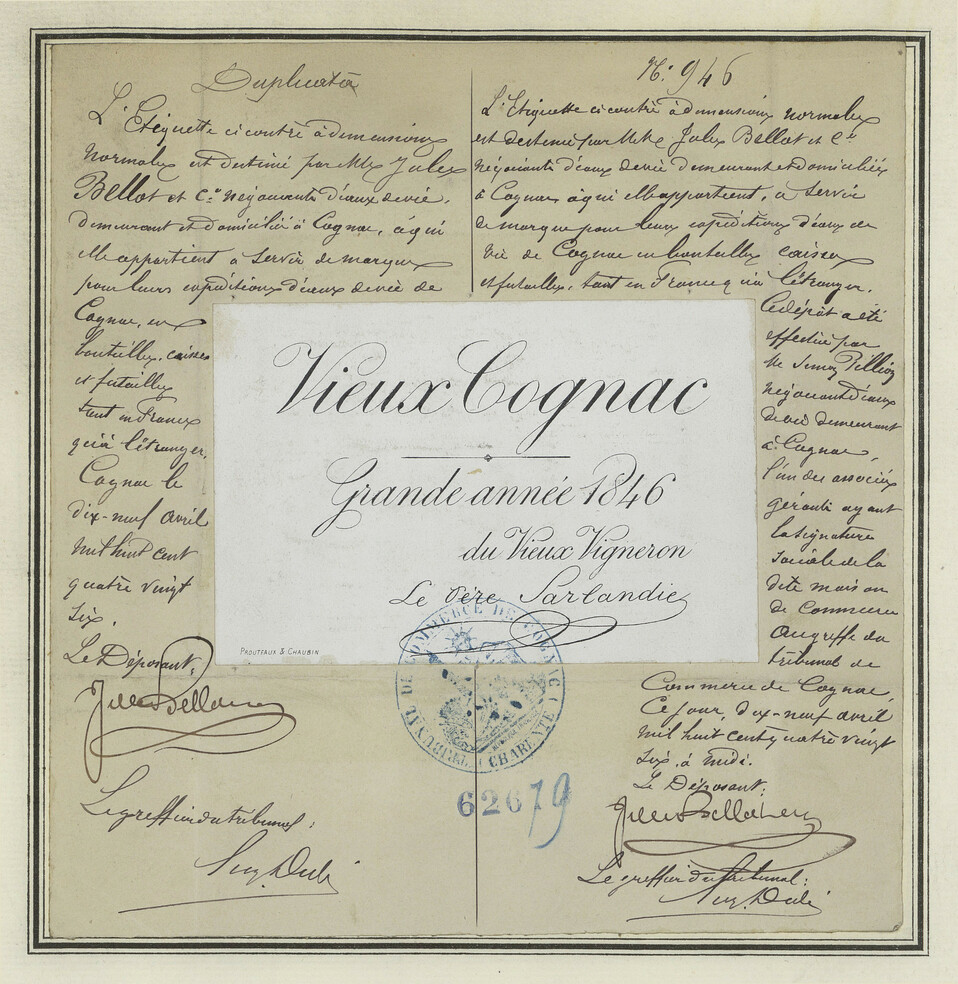 Duplicata
L'Etiquette ci contre à dimensions
normales est destiné par MM. Jules
Bellot et Cie négociants d'eaux de vie,
demeurant et domiciliés à Cognac, à qui
elle appartient à servir de marque
pour leurs expéditions d'eaux de vie de
Cognac, en
bouteilles, caisses
et futailles
tant en France
qu'à l'étranger.
Cognac le
dix-neuf avril
mil huit cent
quatre vingt
six.
Le Déposant,
Le greffier du tribunal:
Vieux Cognac
Grande année 1846
du Vieux Vigneron
Le Père Sarlandie
PROUTEAUX & CHAUBIN
TRIBUNAL DE COMMERCE DE COGNAC (CHARENTE)
62679
N° 946
L'Etiquette ci contre à dimensions normales
est destiné par MM. Jules Bellot et Cie
négociants d'eaux de vie demeurant et domiciliés
à Cognac à qui elle appartient, à servir
de marque pour leurs expéditions d'eaux de
vie de Cognac en bouteilles caisses
et futailles, tant en France qu'à l'étranger.
Ce dépôt a été
effectué par
négociant d'eaux
de vie demeurant
à Cognac,
l'un des associés
gérants ayant
la signature
sociale de la
dite maison
de Commerce
au greffe du
tribunal de
Commerce de Cognac,
ce jour, dix-neuf avril
mil huit cent quatre vingt
six, à midi.
Le Déposant:
Le greffier du tribunal: